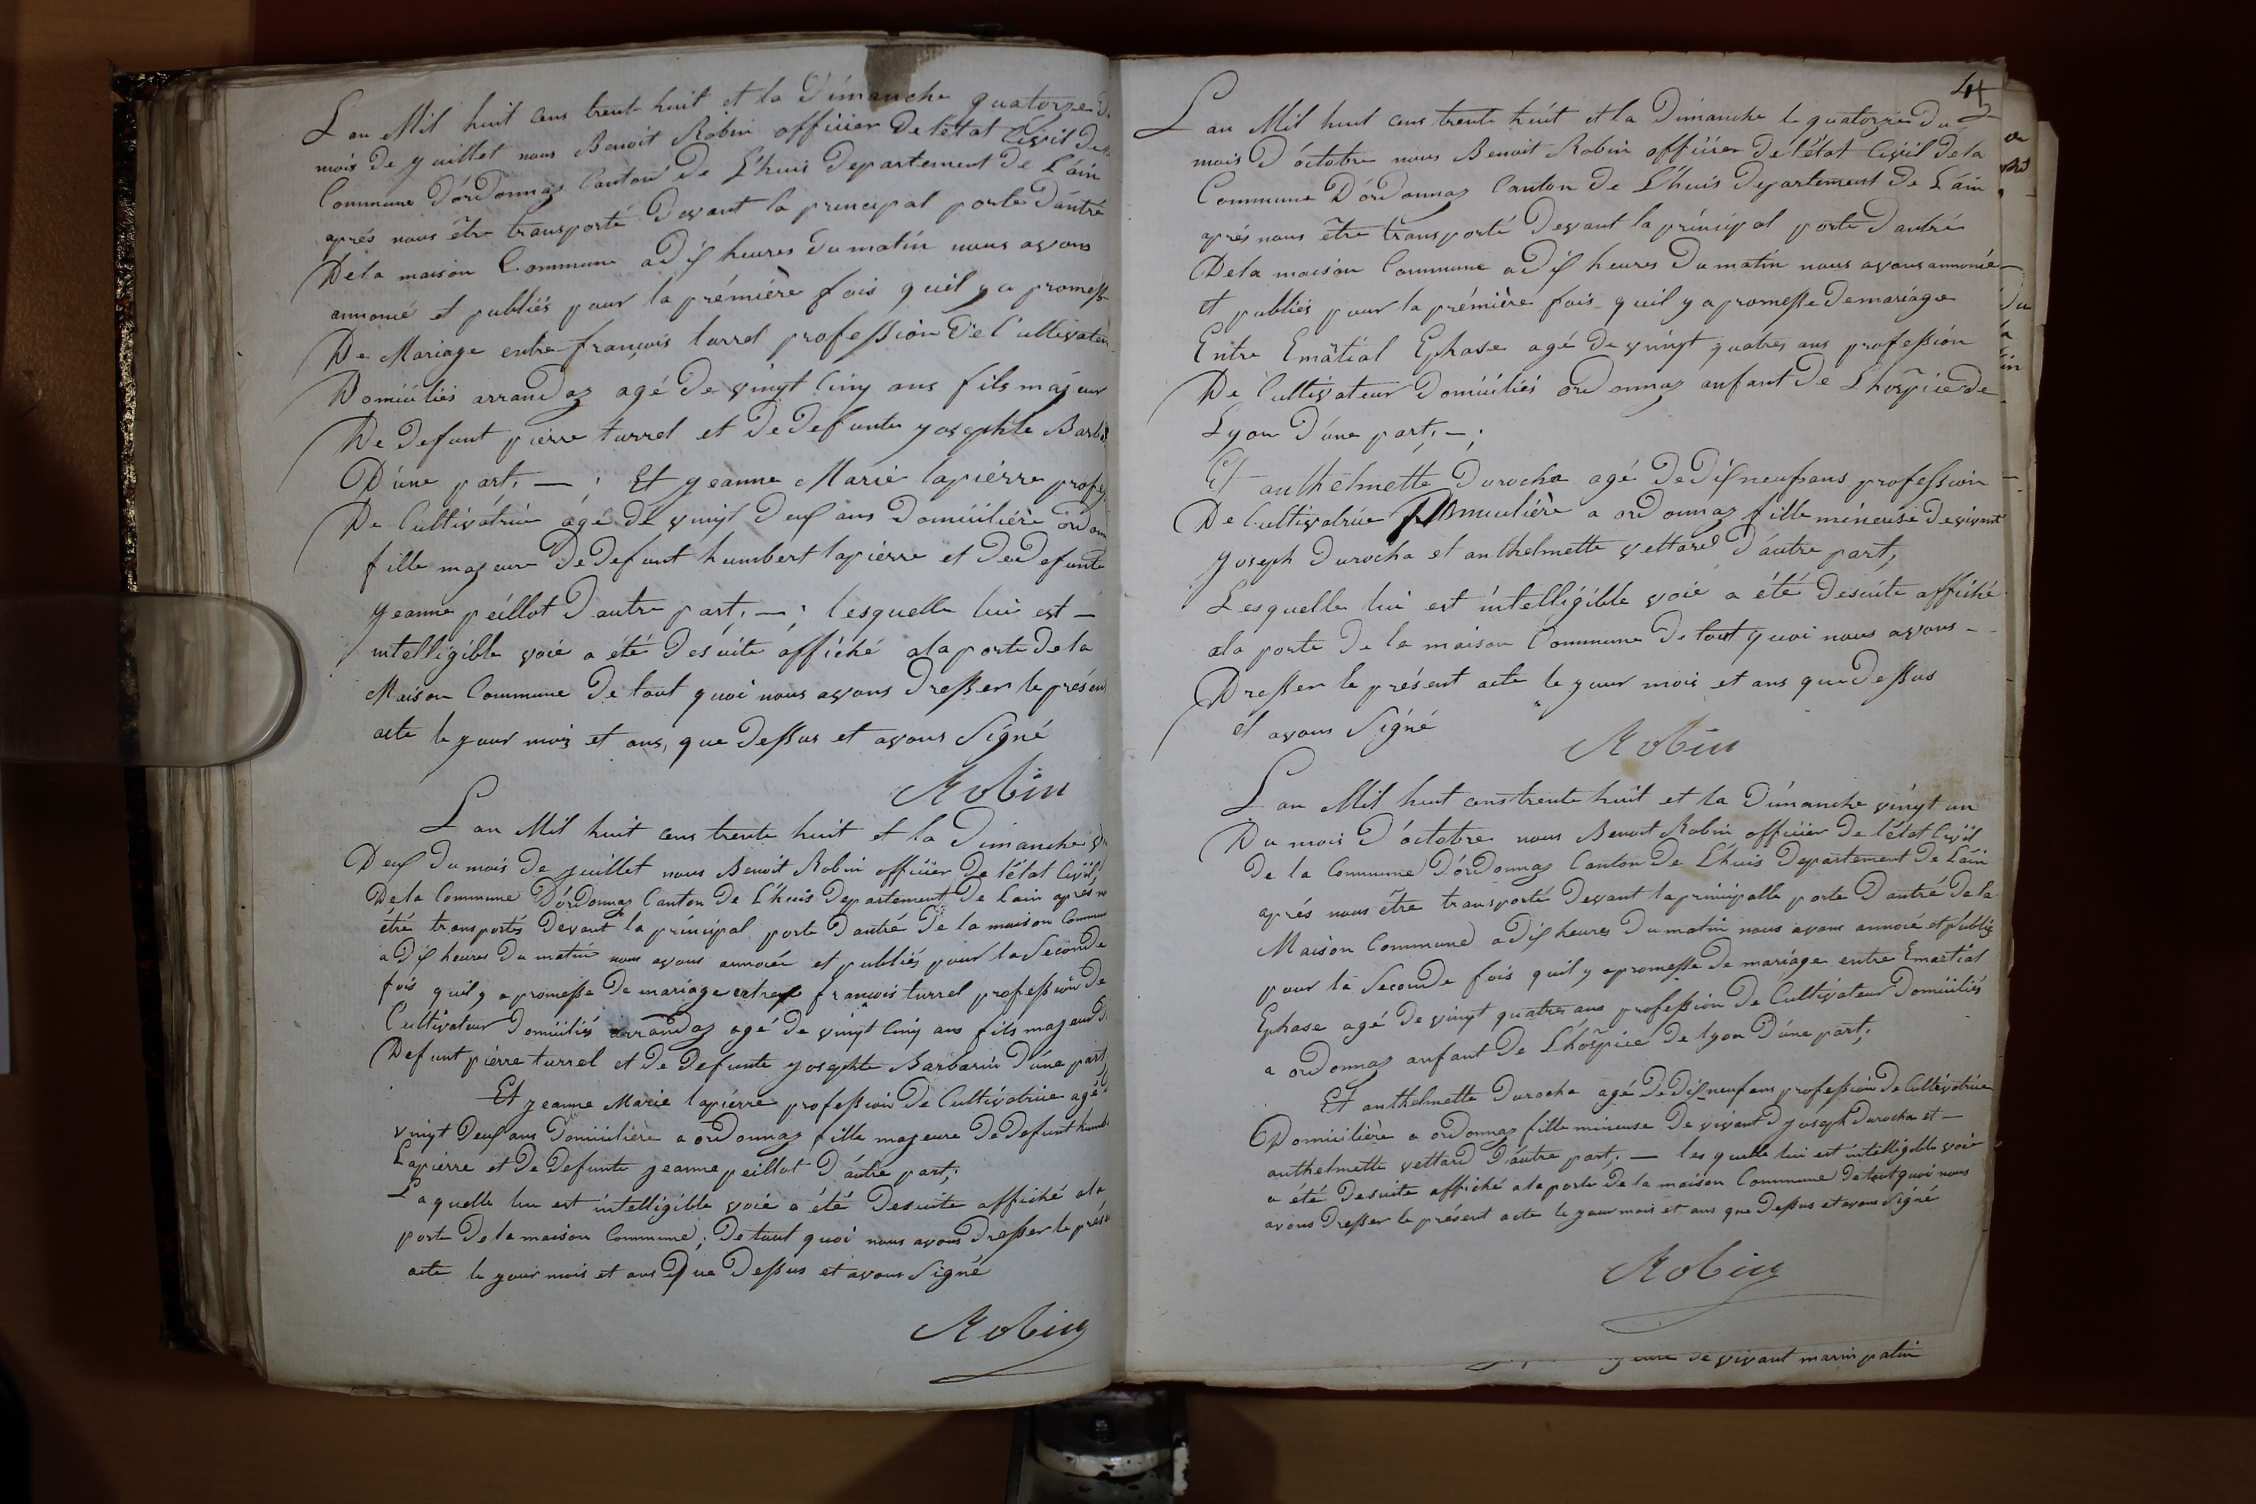 L'an Mil huit cens trente huit et la Dimanche quatorze Du
mois de juillet nous Benoit Robin officier De létat Civil De
Commune D'ordonnaz Canton De L'huis Departement De L'áin
aprés nous être transporté Devant la principal porte D'antré
De la maison Commune a Dix heures Du matin nous avons
annoncé et publiés pour la prémière fois quil y a promesse
De Mariage entre françois turrel profession De Cultivateur
Domiciliés arrandaz agé De vingt Cinq ans fils majeur
De Defunt pierre turrel et De Defunte josephte Barba
D'une part, — ; Et jeanne Marie lapierre profes
De Cultivatrice agé de vingt Deux ans Domicilière ordon
fille majeure De Defunt humbert lapierre et De Defunte
jeanne peillot D'autre part, — ; lesquelle lui est —
intelligible voie a été Desuite affiché a la porte De la
Maison Commune De tout quoi nous avons Dresser le présent
acte le jour mois et ans, que Dessus et avons Signé
Robin
L'an Mil huit cens trente huit et la Dimanche
Deux Du mois De juillet nous Benoit Robin officier De l'état Civil
De la Commune D'ordonnaz Canton De L'huis Departement De L'ain aprés
être transportés Devant la principal porte D'antré De la maison Commune
a Dix heures Du matin nous avons annoncé et publiés pour la Seconde
fois quil y a promesse De mariage entre françois turrel profession De
Cultivateur Domiciliés arrandaz agé De vingt Cinq ans fils majeur D
Defunt pierre turrel et De Defunte josephte Barbarin D'une part,
Et jeanne Marie lapierre profession De Cultivatrice agé
vingt Deux ans Domicilière a ordonnaz fille majeure De Defunt humb
Lapierre et De Defunte jeanne peillot D'autre part;
Laquelle lui est intelligible voie a été Desuite affiché a la
porte De la maison Commune; De tout quoi nous avons Dresser le prése
acte le jour mois et ans Que Dessus et avons Signé
Robin
L'an Mil huit cens trente huit et la Dimanche le quatorze Du
mois D'octobre nous Benoit Robin officier De l'état Civil De la
Commune D'ordonnaz Canton De L'huis Departement De L'ain
aprés nous être transporté Devant la principal porte D'antré
De la maison Commune a Dix heures Du matin nous avons annoncé —
et publiés pour la prémière fois quil y a promesse De mariage
Entre Ematial Ephase agé De vingt quatres ans profession
De Cultivateur Domiciliés ordonnaz anfant De L'hospice De
Lyon D'une part, — ;
Et anthelmette Durocha agé De Dix neuf ans profession —
De Cultivatrice Domicilière a ordonnaz fille mineuse De vivant
joseph Durocha et anthelmette vettard D'autre part,
Lesquelle lui est intelligible voie a été Desuite affiché
a la porte De la maison Commune De tout quoi nous avons —
Dresser le présent acte le jour mois et ans que Dessus
et avons Signé
Robin
L'an Mil huit cens trente huit et la Dimanche vingt un
Du mois D'octobre nous Benoit Robin officier De l'état Civil
De la Commune D'ordonnaz Canton De L'huis Departement De L'ain
aprés nous être transporté Devant la principalle porte D'antré De la
Maison Commune a Dix heures Du matin nous avons annoncé et publiés
pour la Seconde fois quil y a promesse De mariage entre Ematial
Ephase agé De vingt quatres ans profession De Cultivateur Domiciliés
a ordonnaz anfant De L'hospice De lyon D'une part;
Et anthelmette Durocha agé De Dix neuf ans profession De Cultivatrice
Domicilière a ordonnaz fille mineuse De vivant joseph Durocha et —
anthelmette vettard D'autre part, — lesquelle lui est intelligible voie
a été Desuite affiché a la porte De la maison Commune De tout quoi nous
avons Dresser le présent acte le jour mois et ans que Dessus et avons Signé
Robin
De vivant marin patin